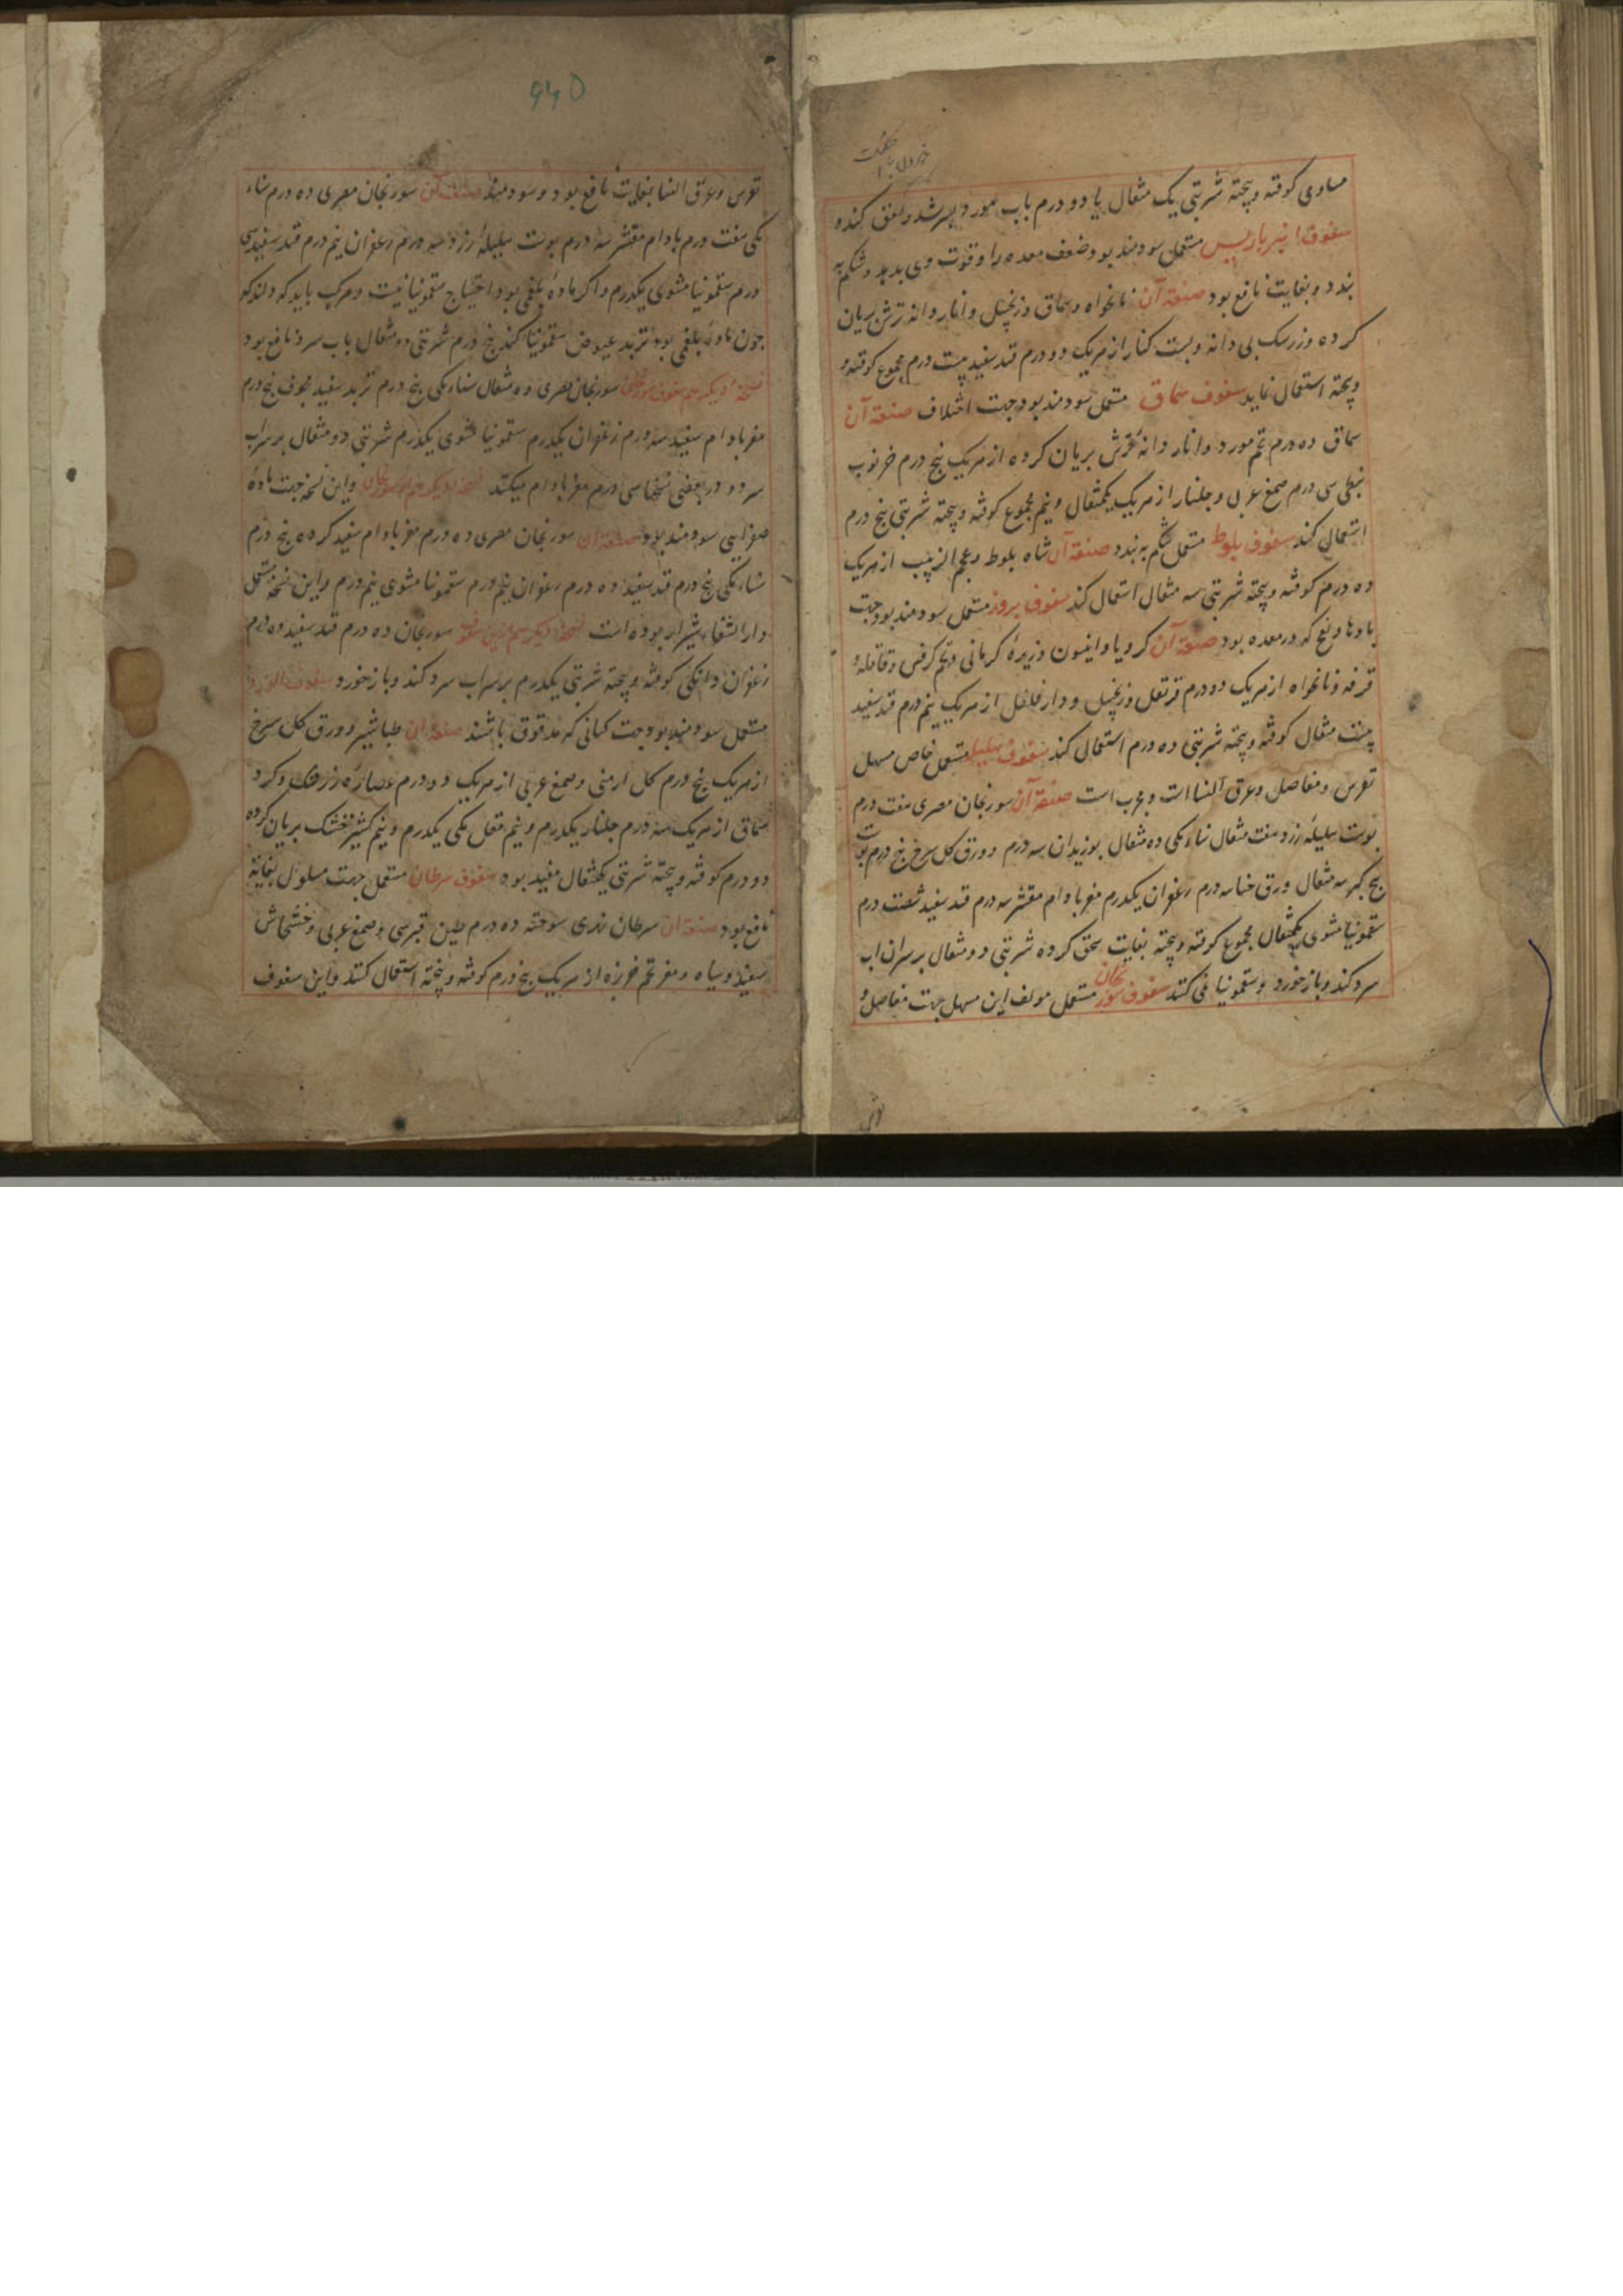 مساوی کوفته و پخته شربتی یک مثقال یا دو درم باب مورد بسرشد و لعق کند و
سفوف انبرباریس مستعمل سودمند بود ضعف معده را و قوت وی بدهد و شکم به
بندد و بغایت نافع بود صنعة آن نانخواه و سماق و زنجبیل و انار دانه ترش بریان
کرده و زرشک بی دانه و بست کنار از هریک دو درم قند سفید بیست درم مجموع کوفته و
وپخته استعمال نماید سفوف سماق مستعمل سودمند بود جهت اختلاف صنعة آن
سماق ده درم تخم مورد و انار دانه ترش بریان کرده از هریک پنج درم خرنوب
نبطی سی درم صمغ عربی و جلنار از هریک یکمثقال و نیم مجموع کوفته و پخته شربتی پنج درم
استعمال کند سفوف بلوط مستعمل شکم به بندد صنعة آن شاه بلوط و عجم الزبیب از هریک
ده درم کوفته و پخته شربتی سه مثقال استعمال کند سفوف بروز مستعمل سودمند بود جهت
بادها و نفخ که در معده بود صنعة آن کرویا و انیسون و زیره کرمانی و تخم کرفس و قاقله و
قرفه و نانخواه از هریک دو درم قرنفل و زنجبیل و دارفلفل از هریک نیم درم قند سفید
بیست مثقال کوفته و پخته شربتی ده درم استعمال کند سفوف هلیله مستعمل خاص مسهل
نقرس و مفاصل و عرق النسا است و مجرب است صنعة آن سورنجان مصری هفت درم
پوست هلیله زرد هفت مثقال سناء مکی ده مثقال بوزیدان سه درم و ورق کل سرخ پنج درم پوست
بیخ کبر سه مثقال ورق حنا سه درم زعفران یکدرم مغز بادام مقشر سه درم قند سفید شصت درم
سقمونیا مشوی یکمثقال مجموع کوفته و پخته بغایت سحق کرده شربتی دو مثقال بر سر آن اب
سرد کند و باز خورد و سقمونیا فی کنند سفوف سورنجان مستعمل مولف این مسهل جهت مفاصل و
نقرس و عرق النسا بغایت نافع بود و سودمند صنعت آن سورنجان مصری ده درم سناء
مکی هفت درم بادام مقشر سه درم پوست هلیله زرد سه درم زعفران نیم درم قند سفید سی
درم سقمونیا مشوی یکدرم و اکر ماده بلغمی بود احتیاج سقمونیا نیست و مرکب باید که
چون ماده بلغمی بود تربد عیوض سقمونیا کند پنج درم شربتی دو مثقال باب سرد نافع بود
نسخه دیکر هم سفوف سورنجان سورنجان مصری ده مثقال سناء مکی پنج درم تربد سفید مجوف پنج درم
مغز بادام سفید سه درم زعفران یکدرم سقمونیا مشوی یکدرم شربتی دو مثقال بر سراب
سرد و در بعضی نسخها سی درم مغز بادام میکند نسخه دیکر هم سورنجان و این نسخه جهت ماده
صفرایی سودمند بود صنعة آن سورنجان مصری ده درم مغز بادام سفید کرده پنج درم
سناء مکی پنج درم قند سفید ده درم زعفران نیم درم سقمونیا مشوی نیم درم و این نسخه مستعمل
دارالشفاء شیراز بوده است نسخه دیکر هم ازین سفوف سورنجان ده درم قند سفید ده درم
زعفران دانکی کوفته و پخته شربتی یکدرم بر سراب سرد کند و باز خورد سفوف الورد
مستعمل سودمند بود جهت کسانی که مدقوق باشند صنعة آن طباشیر و ورق کل سرخ
از هریک پنج درم کل ارمنی و صمغ عربی از هریک دو درم عصاره زرشک و کرد
سماق از هریک سه درم جلنار یکدرم و نیم مقل مکی یکدرم و نیم کشنیز خشک بریان کرده
دو درم کوفته و پخته شربتی یکمثقال مفید بود سفوف سرطان مستعمل جهت مسلول بغایة
نافع بود صنعة آن سرطان نهری سوخته ده درم طین قبرسی و صمغ عربی و خشخاش
سفید و سیاه و مغز تخم خربزه از هریک پنج درم کوفته و پخته استعمال کنند و این سفوف